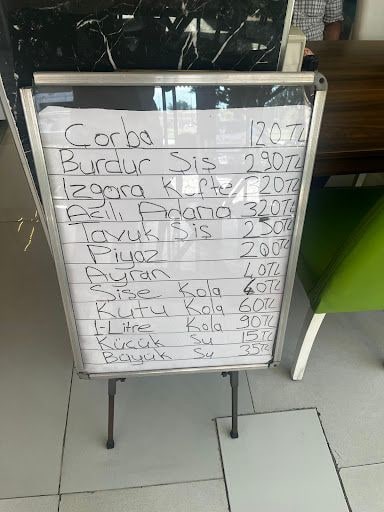 Çorba 120TL
Burdur Şiş 290TL
Izgara Küfte 320TL
Acılı Adana 320TL
Tavuk Şiş 250TL
Piyaz 200TL
Ayran 40TL
Şişe Kola 60TL
Kutu Kola 60TL
1-Litre Kola 90TL
Küçük Su 15TL
Büyük Su 35TL